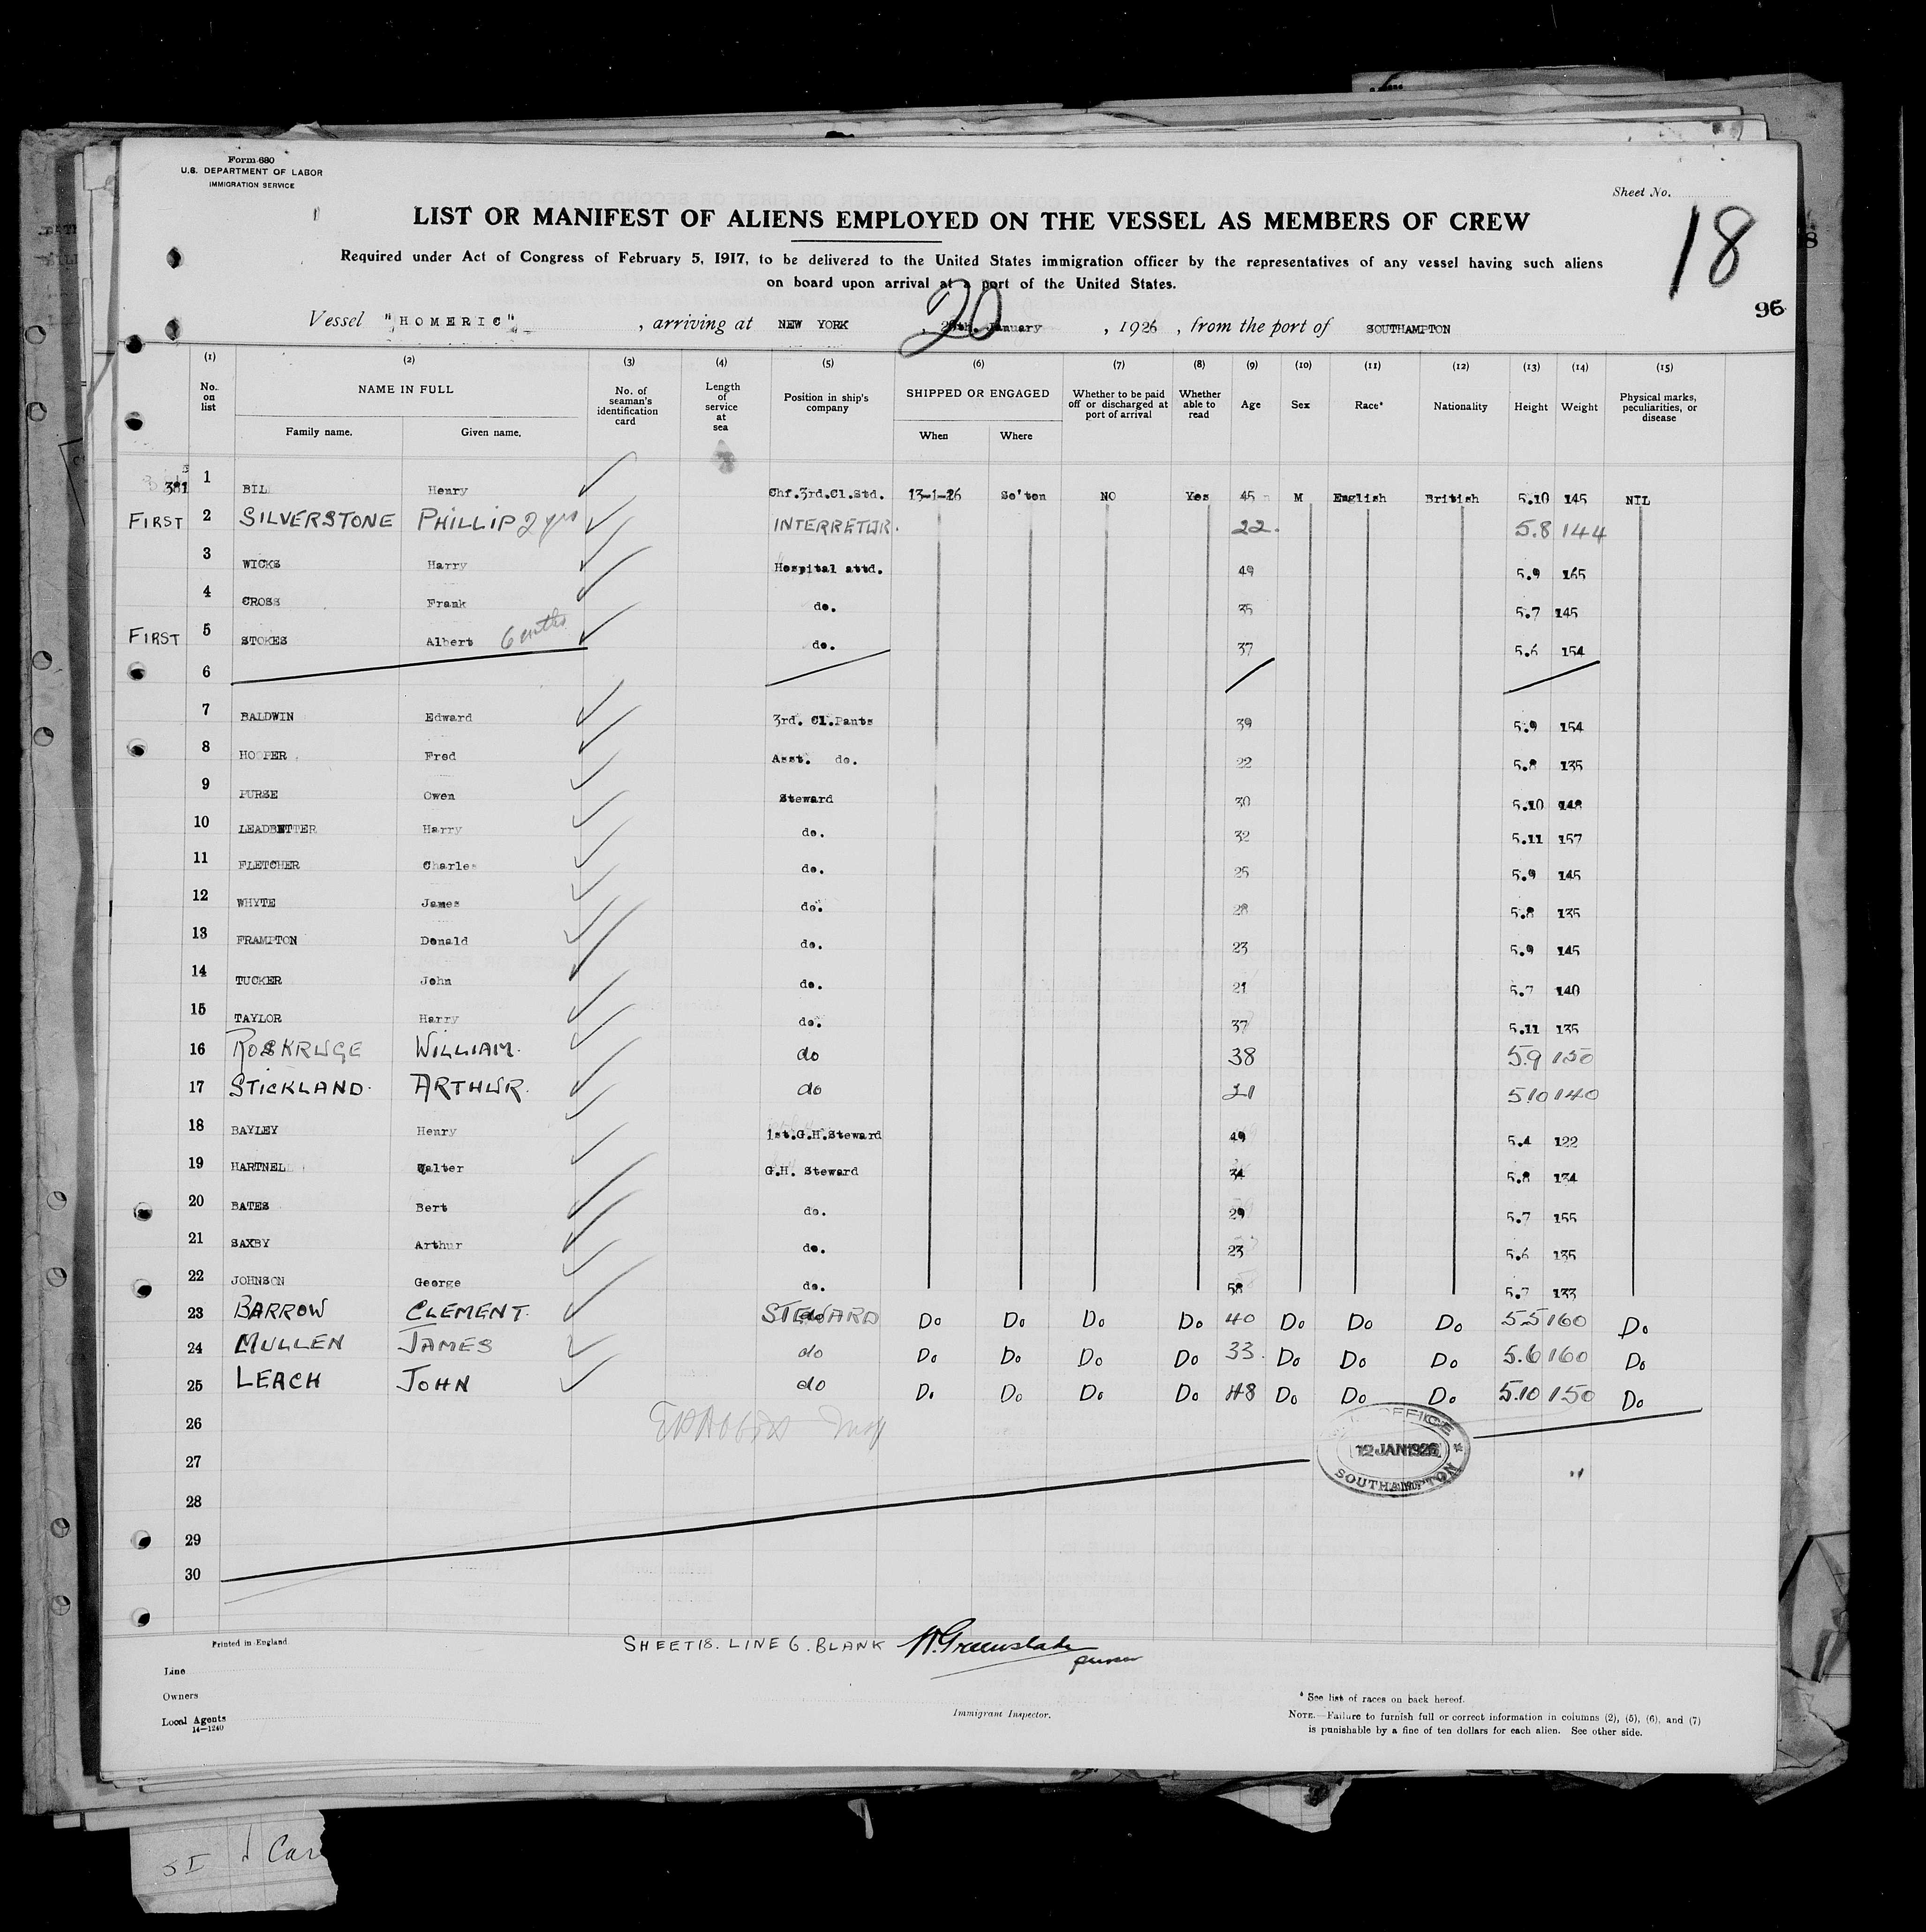 Form 680
U.S. DEPARTMENT OF LABOR
IMMIGRATION SERVICE
Sheet No.
18
LIST OR MANIFEST OF ALIENS EMPLOYED ON THE VESSEL AS MEMBERS OF CREW
Required under Act of Congress of February 5, 1917, to be delivered to the United States immigration officer by the representatives of any vessel having such aliens
on board upon arrival at a port of the United States.
96
Vessel "HOMERIC", arriving at NEW YORK, 20 January, 1926, from the port of SOUTHAMPTON
(1) (2) (3) (4) (5) (6) (7) (8) (9) (10) (11) (12) (13) (14) (15)
No. on list NAME IN FULL No. of seaman's identification card Length of service at sea Position in ship's company SHIPPED OR ENGAGED Whether to be paid off or discharged at port of arrival Whether able to read Age Sex Race* Nationality Height Weight Physical marks, peculiarities, or disease
Family name. Given name. When Where
381 1 BIL Henry Chf.3rd.Cl.Std. 13-1-26 So'ton NO Yes 45 M English British 5.10 145 NIL
FIRST 2 SILVERSTONE PHILLIP 2 yrs INTERRETUR. 22. 5.8 144
3 WICKS Harry Hospital attd. 49 5.9 165
4 CROSS Frank do. 35 5.7 145
FIRST 5 STOKES Albert 6 mths do. 37 5.6 154
6
7 BALDWIN Edward 3rd. Cl.Pants 39 5.9 154
8 HOOPER Fred Asst. do. 22 5.8 135
9 PURSE Owen Steward 30 5.10 148
10 LEADBETTER Harry do. 32 5.11 157
11 FLETCHER Charles do. 25 5.9 145
12 WHYTE James do. 28 5.8 135
13 FRAMPTON Donald do. 23 5.9 145
14 TUCKER John do. 21 5.7 140
15 TAYLOR Harry do. 37 5.11 135
16 ROSKRUGE WILLIAM. do 38 5.9 150
17 STICKLAND. ARTHUR. do 21 5.10 140
18 BAYLEY Henry 1st.G.H.Steward 49 5.4 122
19 HARTNEL Walter G.H. Steward 34 5.8 134
20 BATES Bert do. 29 5.7 155
21 SAXBY Arthur do. 23 5.6 135
22 JOHNSON George do. 58 5.7 133
23 BARROW CLEMENT. STEWARD Do Do Do Do 40 Do Do Do 5.5 160 Do
24 MULLEN JAMES do Do Do Do Do 33. Do Do Do 5.6 160 Do
25 LEACH JOHN do Do Do Do Do 48 Do Do Do 5.10 150 Do
26
27
28
29
30
OFFICE
12 JAN 1926
SOUTHAMPTON
Printed in England.
SHEET 18. LINE 6. BLANK W. Greenslade
purser
Line
Owners
Local Agents
14—1240
Immigrant Inspector.
* See list of races on back hereof.
NOTE.—Failure to furnish full or correct information in columns (2), (5), (6), and (7)
is punishable by a fine of ten dollars for each alien. See other side.
SI